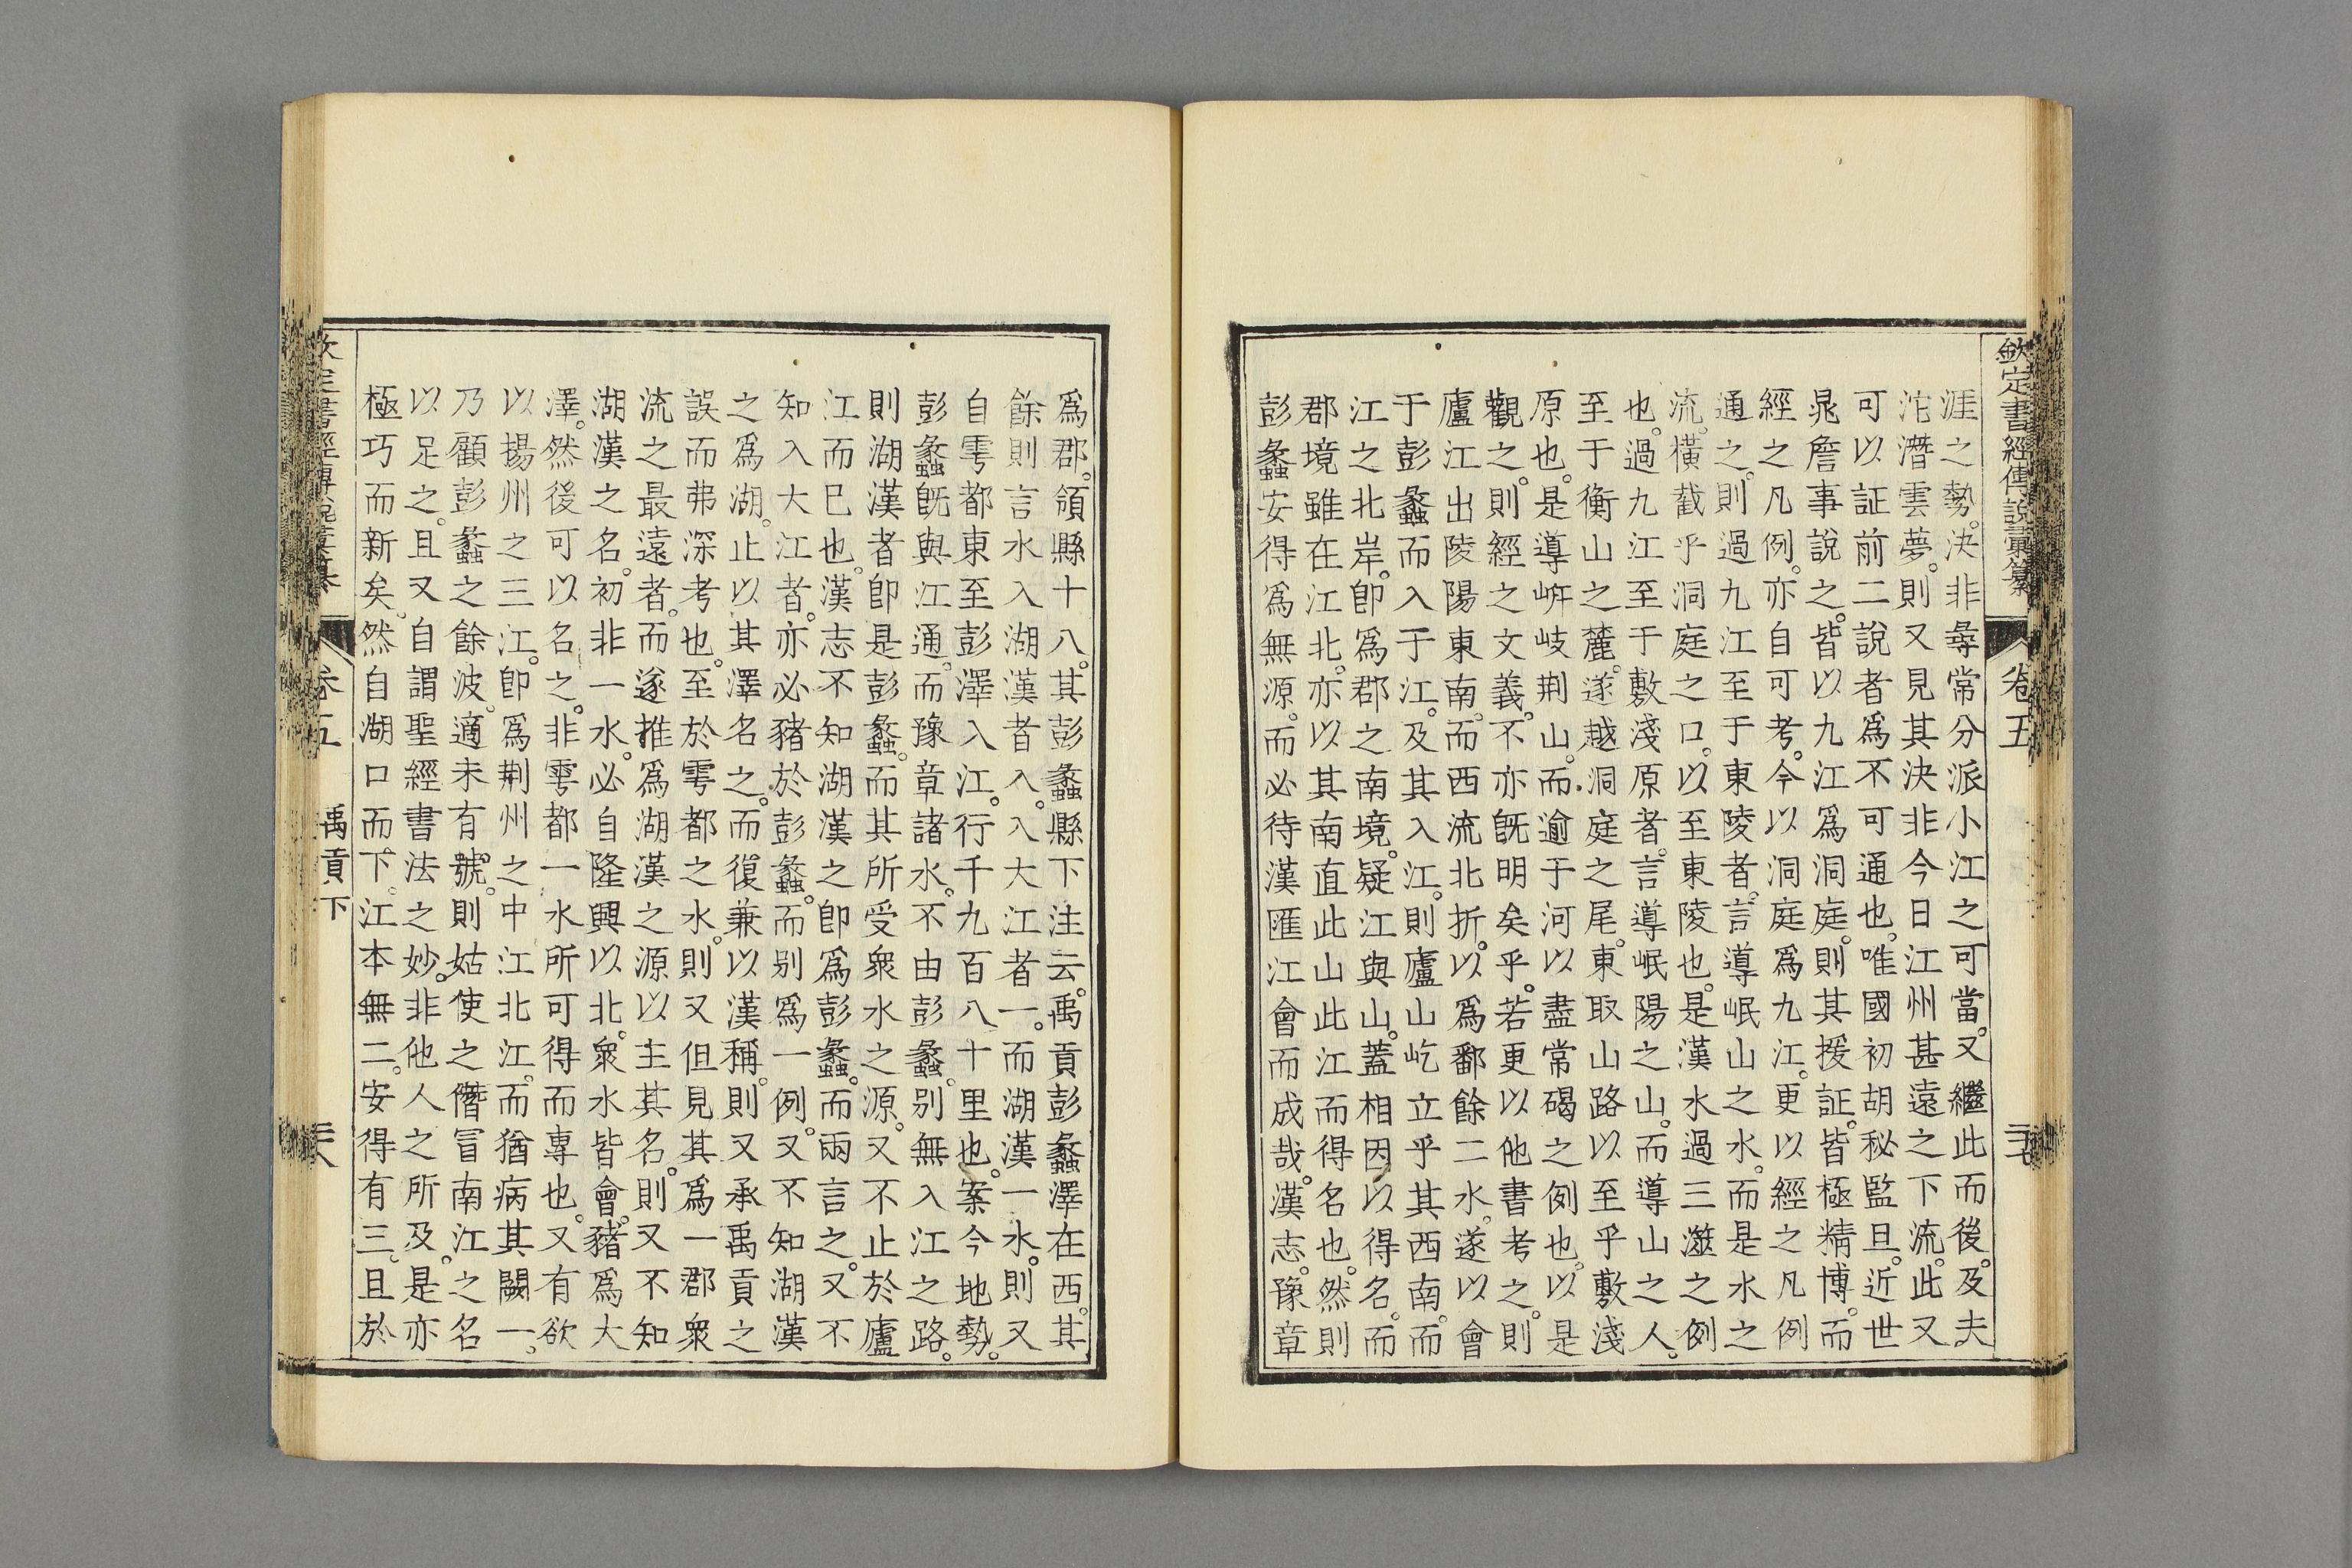 欽定書經傳說彙纂 卷五
涯之勢。決非尋常分派小江之可當。又繼此而後。及夫
沱潛雲夢。則又見其決非今日江州甚遠之下流。此又
可以証前二說者爲不可通也。唯國初胡秘監旦。近世
晁詹事說之。皆以九江爲洞庭。則其援証。皆極精博。而
經之凡例。亦自可考。今以洞庭爲九江。更以經之凡例
通之。則過九江至于東陵者。言導岷山之水。而是水之
流。橫截乎洞庭之口。以至東陵也。是漢水過三澨之例
也。過九江至于敷淺原者。言導岷陽之山。而導山之人。
至于衡山之麓。遂越洞庭之尾。東取山路以至乎敷淺
原也。是導岍岐荆山。而逾于河以盡常碣之例也。以是
觀之。則經之文義。不亦旣明矣乎。若更以他書考之。則
廬江出陵陽東南。而西流北折。以爲鄱餘二水。遂以會
于彭蠡而入于江。及其入江。則廬山屹立乎其西南。而
江之北岸。卽爲郡之南境。疑江與山。蓋相因以得名。而
郡境雖在江北。亦以其南直此山此江而得名也。然則
彭蠡安得爲無源。而必待漢匯江會而成哉。漢志。豫章
爲郡。領縣十八。其彭蠡縣下注云。禹貢彭蠡澤在西。其
餘則言水入湖漢者入。入大江者一。而湖漢一水。則又
自雩都東至彭澤入江。行千九百八十里也。案今地勢。
彭蠡旣與江通。而豫章諸水。不由彭蠡。別無入江之路。
則湖漢者卽是彭蠡。而其所受衆水之源。又不止於廬
江而已也。漢志不知湖漢之卽爲彭蠡。而兩言之。又不
知入大江者。亦必豬於彭蠡。而别爲一例。又不知湖漢
之爲湖。止以其澤名之。而復兼以漢稱。則又承禹貢之
誤而弗深考也。至於雩都之水。則又但見其爲一郡衆
流之最遠者。而遂推爲湖漢之源以主其名。則又不知
湖漢之名。初非一水。必自隆興以北。衆水皆會。豬爲大
澤。然後可以名之。非雩都一水所可得而專也。又有欲
以揚州之三江。卽爲荆州之中江北江。而猶病其闕一。
乃顧彭蠡之餘波。適未有號。則姑使之僭冒南江之名
以足之。且又自謂聖經書法之妙。非他人之所及。是亦
極巧而新矣。然自湖口而下。江本無二。安得有三。且於
卷五 禹貢下